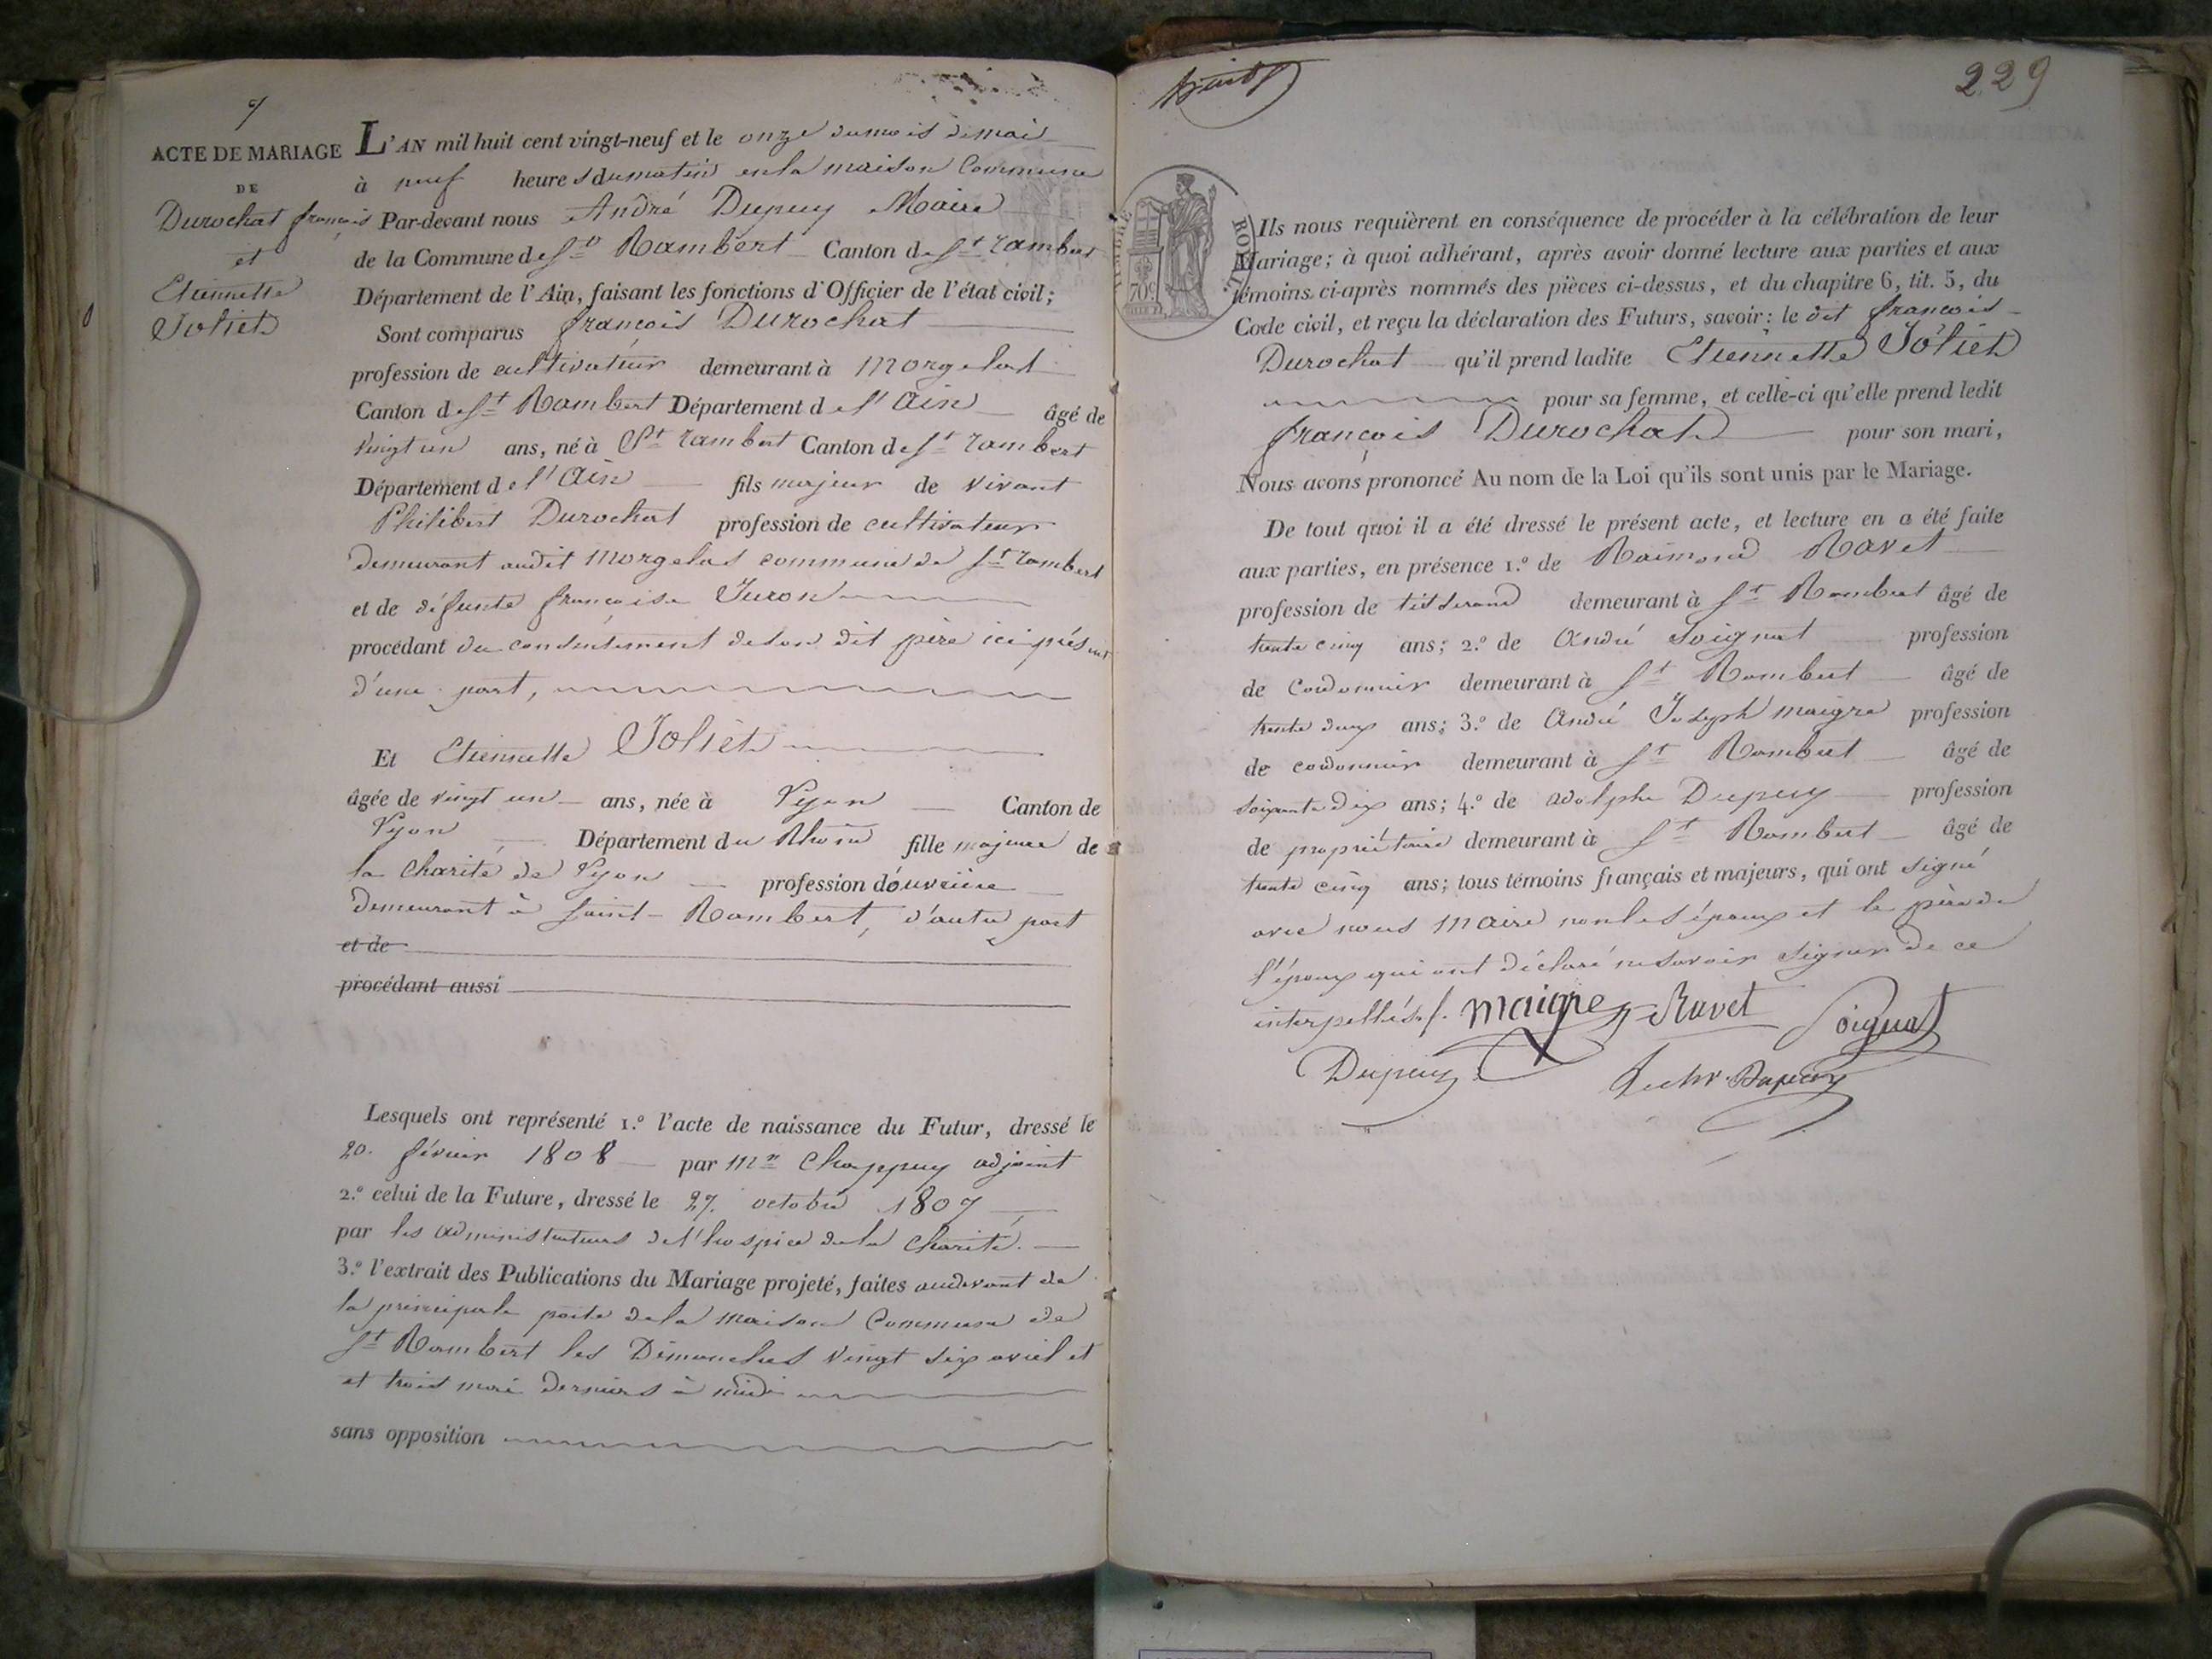 9
ACTE DE MARIAGE
DE
Durochat françois
et
Etiennette
Joliet
L'AN mil huit cent vingt-neuf et le onze du mois de mai
à neuf heures du matin en la maison Commune
Par-devant nous André Dupuy Maire
de la Commune de St Rambert Canton de St rambert
Département de l'Ain, faisant les fonctions d'Officier de l'état civil;
Sont comparus françois Durochat
profession de cultivateur demeurant à morgelas
Canton de St Rambert Département de l'Ain âgé de
vingt un ans, né à St rambert Canton de St rambert
Département de l'Ain fils majeur de vivant
Philibert Durochat profession de cultivateur
demeurant audit morgelas commune de St rambert
et de défunte françoise Juron
procédant du consentement de son dit père ici présent
d'une part,
Et Etiennette Joliet
âgée de vingt un ans, née à Lyon Canton de
Lyon Département du Rhône fille majeure de
la Charité de Lyon profession d'ouvrière
demeurant à Saint-Rambert, d'autre part
et de
procédant aussi
Lesquels ont représenté 1.º l'acte de naissance du Futur, dressé le
20. février 1808 par Mr Chappuy adjoint
2.º celui de la Future, dressé le 27. octobre 1807
par les administrateurs de l'hospice de la Charité.
3.º l'extrait des Publications du Mariage projeté, faites audevant de
la principale porte de la maison Commune de
St Rambert les Dimanches vingt six avril et
et trois mai derniers à midi
sans opposition
229
TIMBRE ROYAL
70c
Ils nous requièrent en conséquence de procéder à la célébration de leur
Mariage; à quoi adhérant, après avoir donné lecture aux parties et aux
témoins ci-après nommés des pièces ci-dessus, et du chapitre 6, tit. 5, du
Code civil, et reçu la déclaration des Futurs, savoir: le dit françois
Durochat qu'il prend ladite Etiennette Joliet
pour sa femme, et celle-ci qu'elle prend ledit
françois Durochat pour son mari,
Nous avons prononcé Au nom de la Loi qu'ils sont unis par le Mariage.
De tout quoi il a été dressé le présent acte, et lecture en a été faite
aux parties, en présence 1.º de Raimond Ravet
profession de tisserand demeurant à St Rambert âgé de
trente cinq ans; 2.º de André Soignat profession
de Cordonnier demeurant à St Rambert âgé de
trente deux ans; 3.º de André Joseph maigre profession
de cordonnier demeurant à St Rambert âgé de
soixante dix ans; 4.º de adolphe Dupuy profession
de propriétaire demeurant à St Rambert âgé de
trente cinq ans; tous témoins français et majeurs, qui ont signé
avec nous Maire non les époux et le père de
l'époux qui ont déclaré ne savoir signer de ce
interpellés./. maigre Ravet Soignat
Dupuy Dupuy